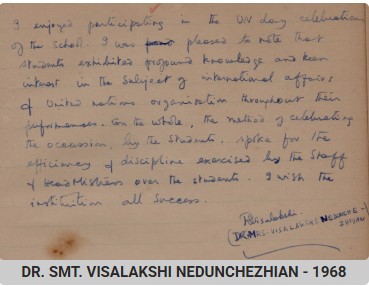 I enjoyed participating in the UN day celebration
of the school. I was pleased to note that
students exhibited profound knowledge and keen
interest in the subject of international affairs
of United nations organisation throughout their
performances. On the whole, the method of celebrating
the occassion, by the students, spoke for the
efficiency & discipline exercised by the Staff
& HeadMistress over the students. I wish the
institution all success.
Visalakshi
DR. MRS. VISALAKSHI NEDUNCHE-
ZHIYAN
DR. SMT. VISALAKSHI NEDUNCHEZHIAN - 1968